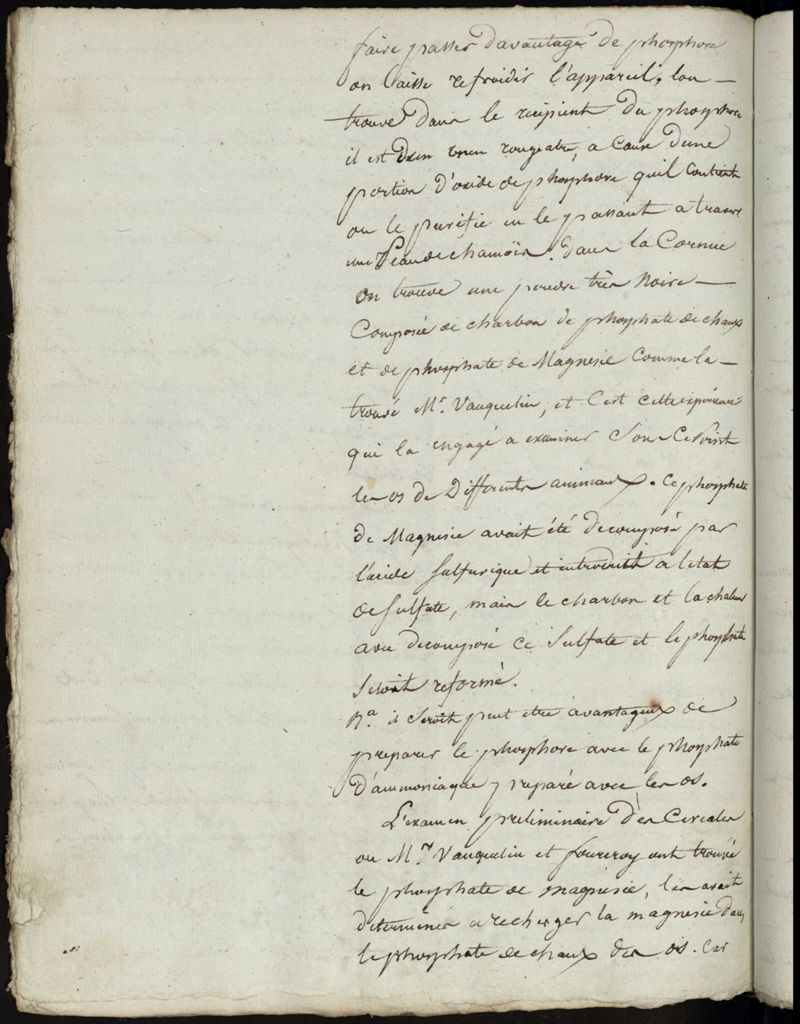 faire passer davantage de phosphore
on laisse refroidir l'appareil, lon
trouve dans le recipient du phosphore
il est dun rougeatre, a cause dune
portion d'oxide de phosphore quil contient
on le purifie en le passant a travers
une Peau de chamois. dans la Cornue
on trouve une poudre très noire
Composée de charbon de phosphate de chaux
et de phosphate de Magnesie comme la
trouvé Mr. Vauquelin, et C'est cette expérience
qui la engagé a examiner sous ce point
les os de Differents animaux. Ce phosphate
de Magnesie avait été decomposé par
l'acide sulfurique et a letat
de sulfate, mais le charbon et la chaleur
decomposé ce sulfate et le phosphate
setoit reformé.
Na. il seroit peut etre avantageux de
preparer le phosphore avec le phosphate
d'ammoniaque preparé avec les os.
L'examen preliminaire des Cereales
ou Mrs Vauquelin et fourcroy ont trouvé
le phosphate de magnesie, les avait
determinés a rechercher la magnesie dans
le phosphate de chaux des os. Car